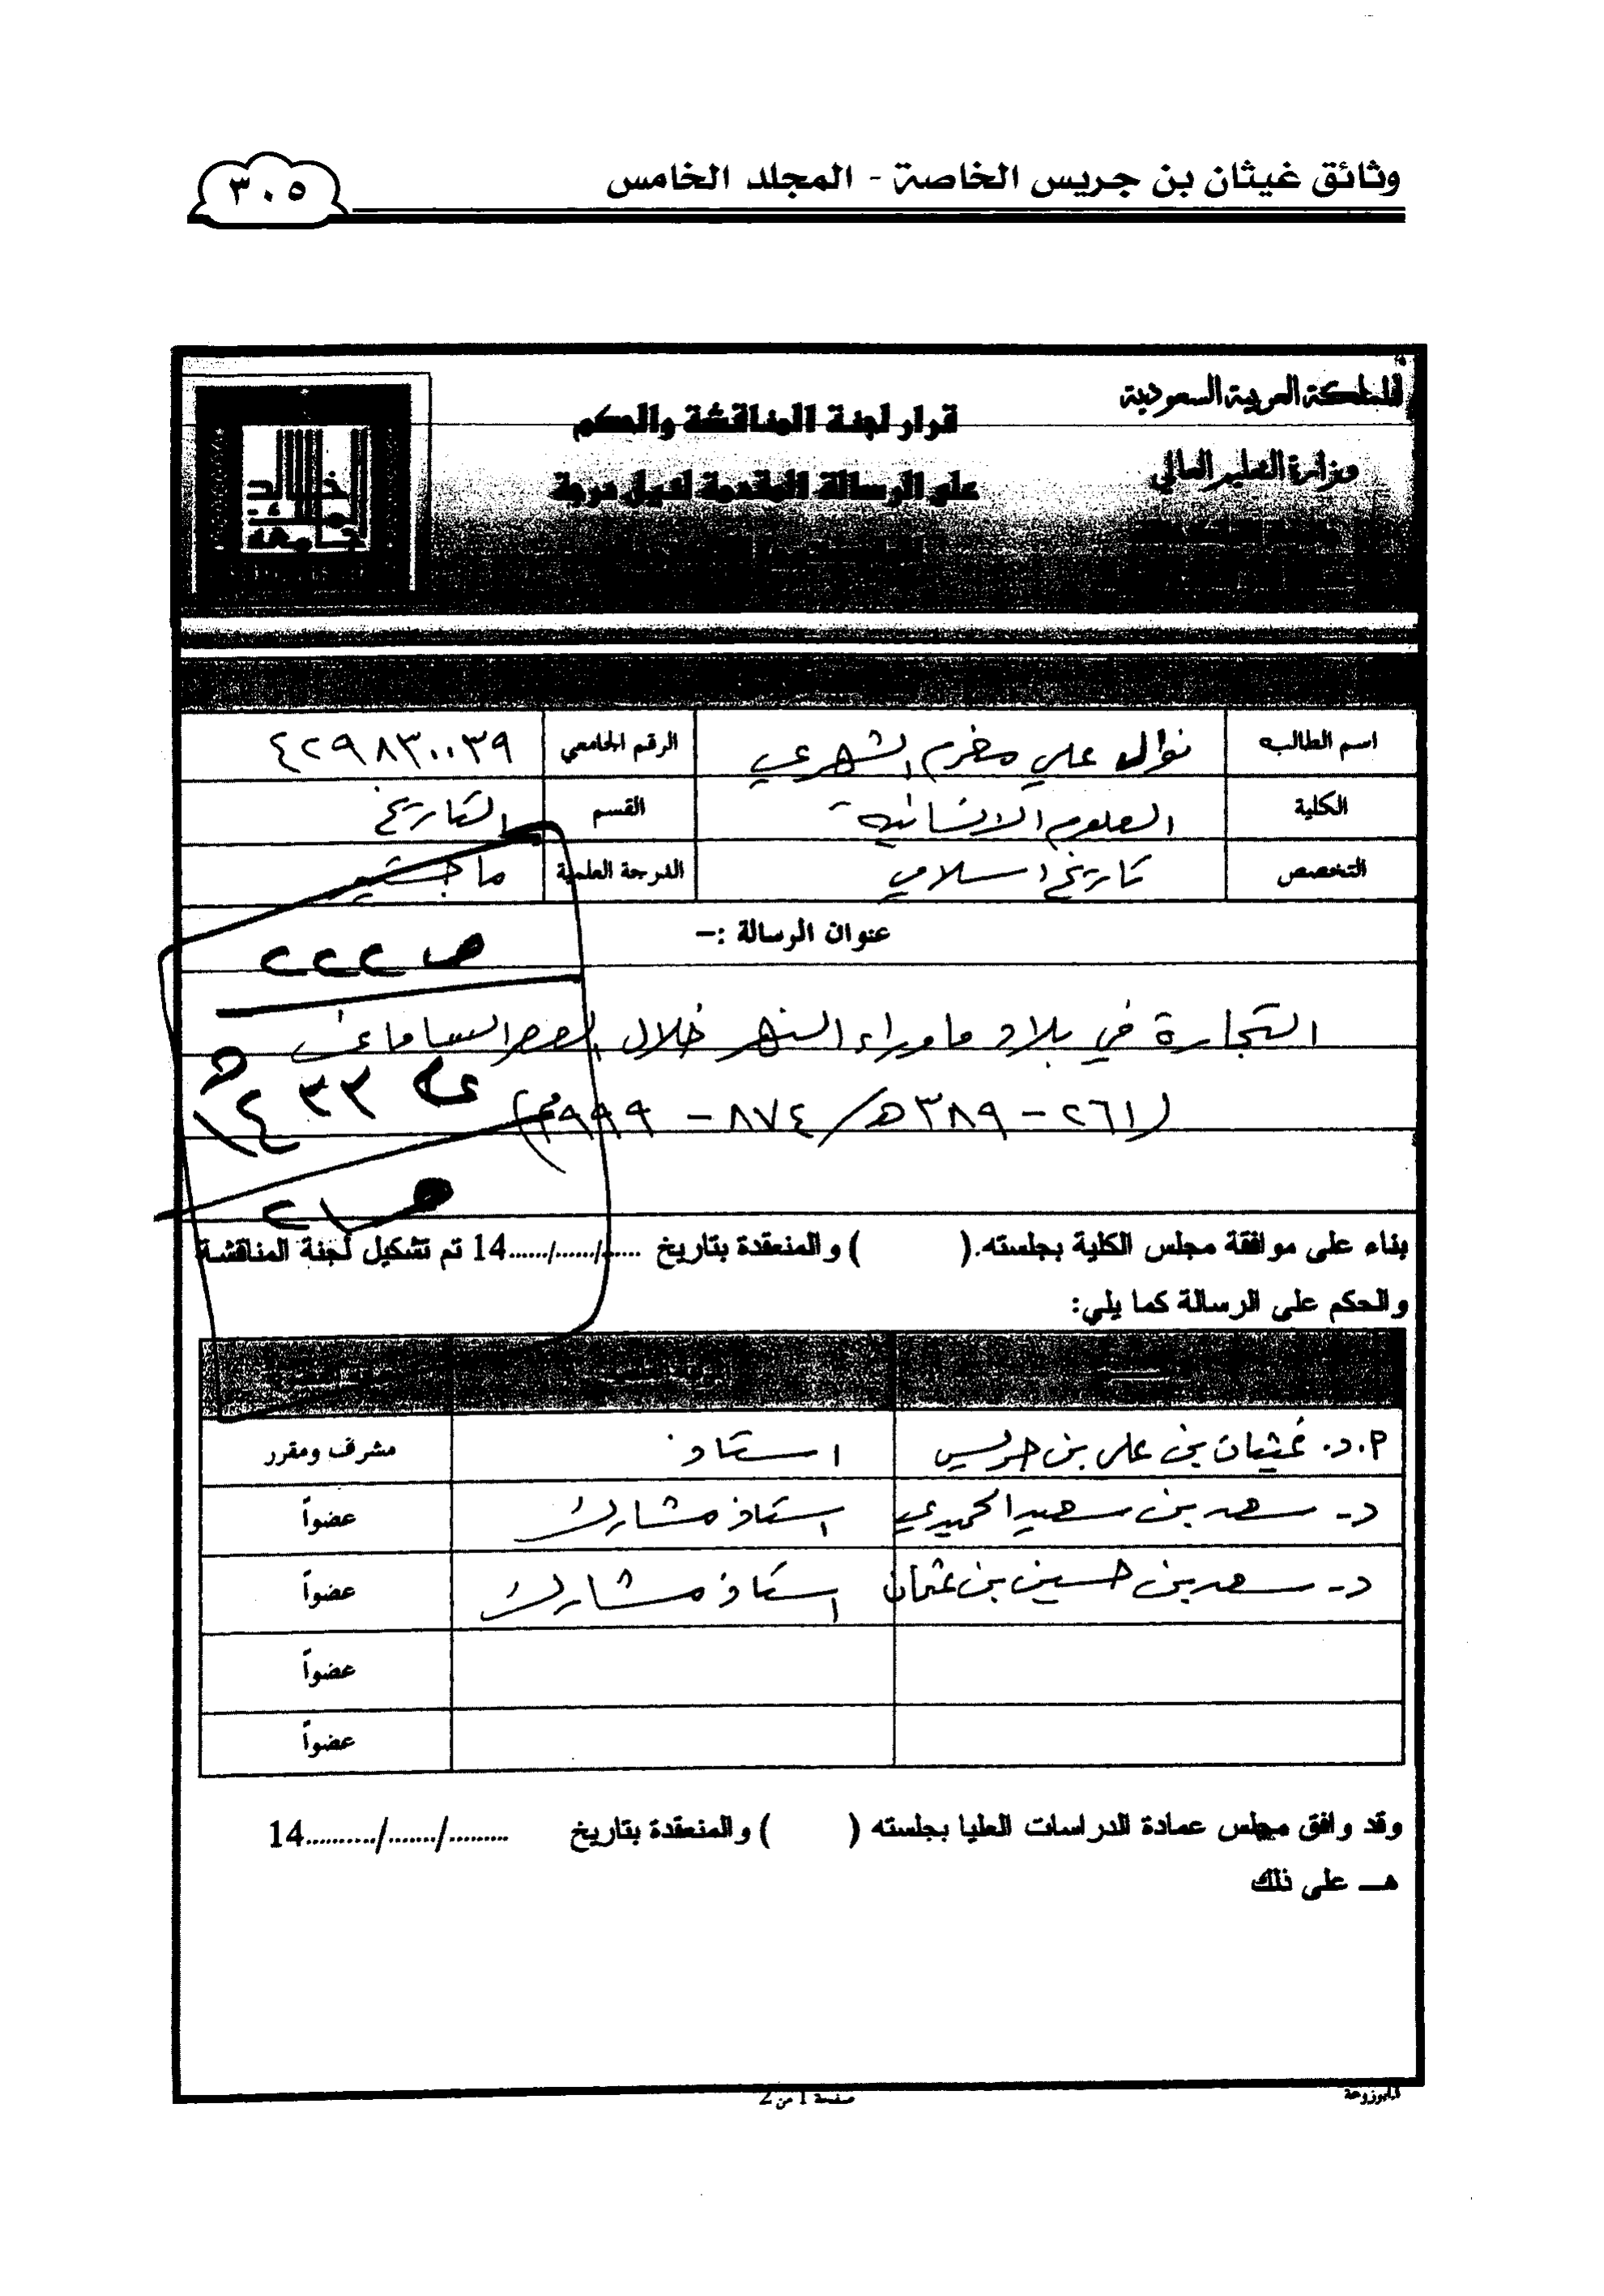 وثائق غيثان بن جريس الخاصة - المجلد الخامس
٣٠٥
المملكة العربية السعودية
وزارة التعليم العالي
قرار لجنة المناقشة والحكم
على الرسالة المقدمة لنيل درجة
جامعة
الملك
خالد
اسم الطالب
نوال علي مفرم الشهري
الرقم الجامعي
٤٢٩٨٣٠٠٣٩
الكلية
العلوم الانسانية
القسم
التاريخ
التخصص
تاريخ اسلامي
الدرجة العلمية
ماجستير
عنوان الرسالة :-
التجارة في بلاد ما وراء النهر خلال العصر الساماني
(٢٦١ - ٣٨٩هـ/ ٨٧٤ - ٩٩٩م)
ص ٢٢٢
١٤٣٣هـ
بناء على موافقة مجلس الكلية بجلسته.( ) والمنعقدة بتاريخ ....../....../......14 تم تشكيل لجنة المناقشة
والحكم على الرسالة كما يلي:
أ.د. غيثان بن علي بن جريس
استاذ
مشرف ومقرر
د- سعد بن سعيد الحميدي
استاذ مشارك
عضواً
د- سعد بن حسين بن عثمان
استاذ مشارك
عضواً
عضواً
عضواً
وقد وافق مجلس عمادة الدراسات العليا بجلسته ( ) والمنعقدة بتاريخ ........./......./..........14
هـ على ذلك
صفحة 1 من 2